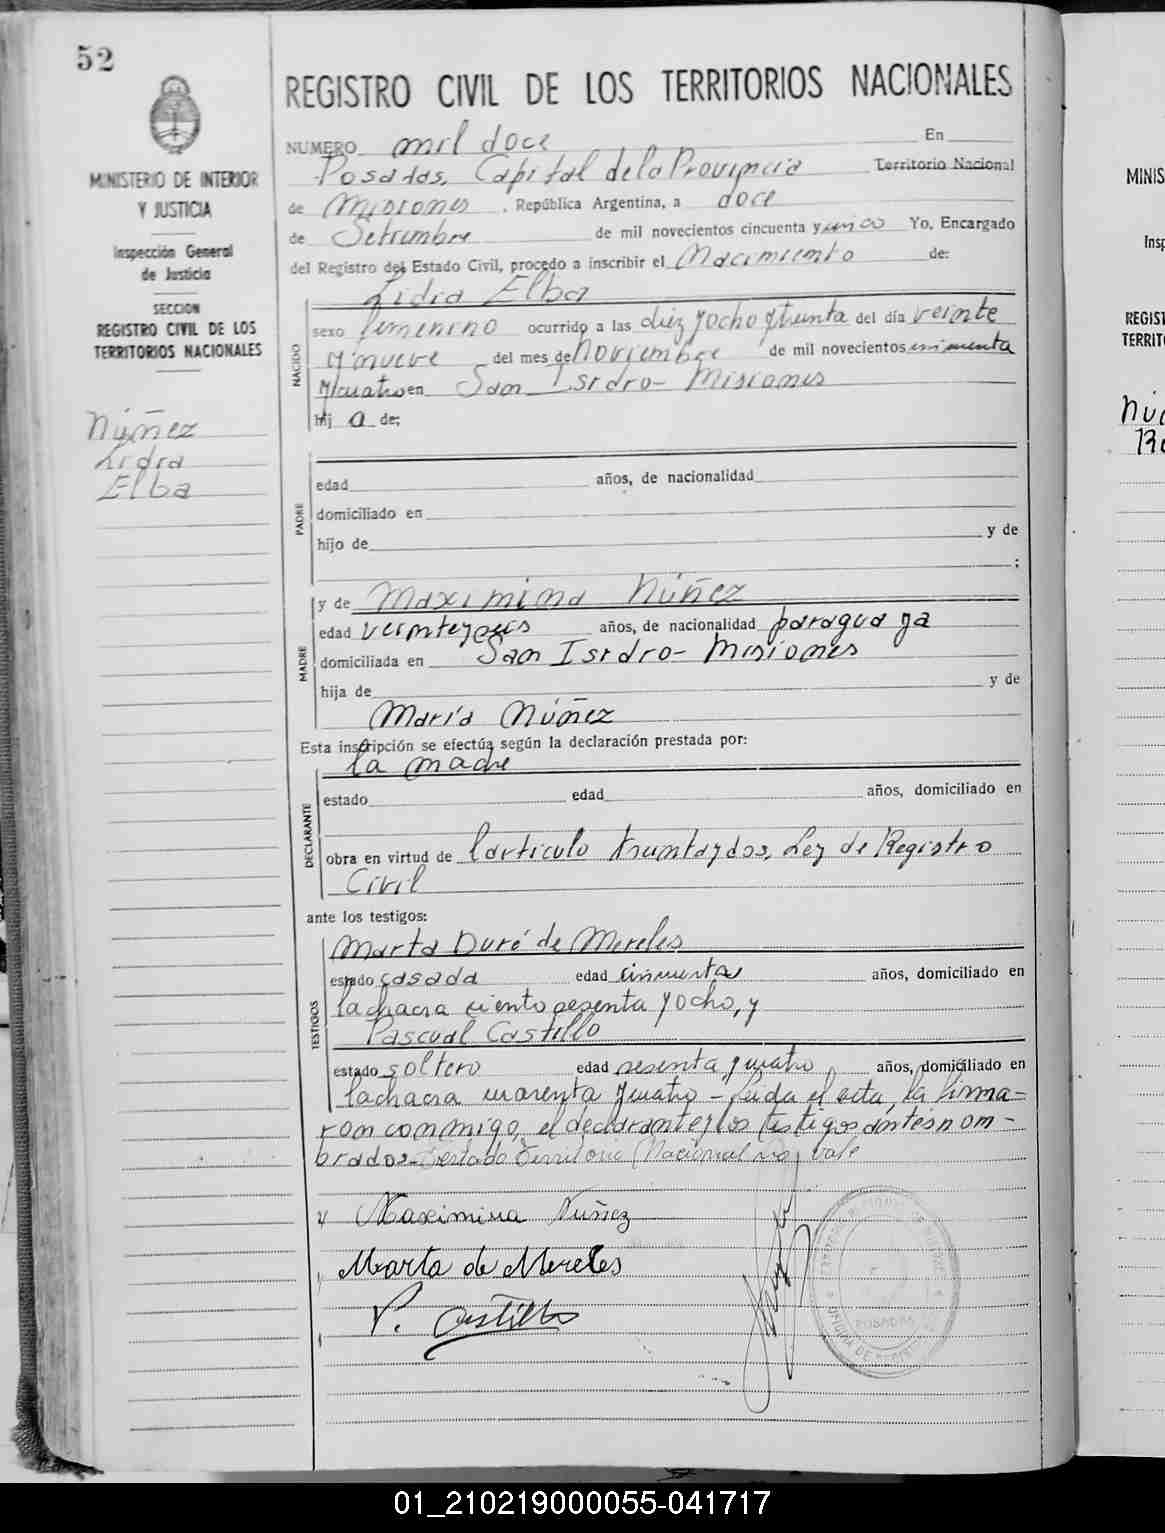 52
MINISTERIO DE INTERIOR
Y JUSTICIA
Inspección General
de Justicia
SECCION
REGISTRO CIVIL DE LOS
TERRITORIOS NACIONALES
Núñez
Lidia
Elba
REGISTRO CIVIL DE LOS TERRITORIOS NACIONALES
NUMERO mil doce En
Posadas, Capital de la Provincia Territorio Nacional
de Misiones, República Argentina, a doce
de Setiembre de mil novecientos cincuenta y Yo, Encargado
del Registro del Estado Civil, procedo a inscribir el Nacimiento de:
Lidia Elba
NACIDO
sexo femenino ocurrido a las diez y ocho y treinta del día veinte
y nueve del mes de Noviembre de mil novecientos cincuenta
y cuatro en San Isidro - Misiones
hij a de:
PADRE
edad años, de nacionalidad
domiciliado en
hijo de y de
;
MADRE
y de Maximina Núñez
edad veinteyseis años, de nacionalidad paraguaya
domiciliada en San Isidro - Misiones
hija de y de
María Núñez
Esta inscripción se efectúa según la declaración prestada por:
la madre
DECLARANTE
estado edad años, domiciliado en
obra en virtud de l'artículo treintaydos, Ley de Registro
Civil
ante los testigos:
TESTIGOS
Marta Duré de Mereles
estado casada edad cincuenta años, domiciliado en
la chacra ciento sesenta y ocho, y
Pascual Castillo
estado soltero edad sesenta y cuatro años, domiciliado en
la chacra cuarenta y cuatro - Leida el acta, la firma-
ron conmigo, el declarante y los testigos antes nom-
brados - Testado Territorio Nacional no vale
Maximina Nuñez
Marta de Mereles
P. Castillo
POSADAS
NÚ
MINIS
Insp
REGIST
TERRIT
01_210219000055-041717